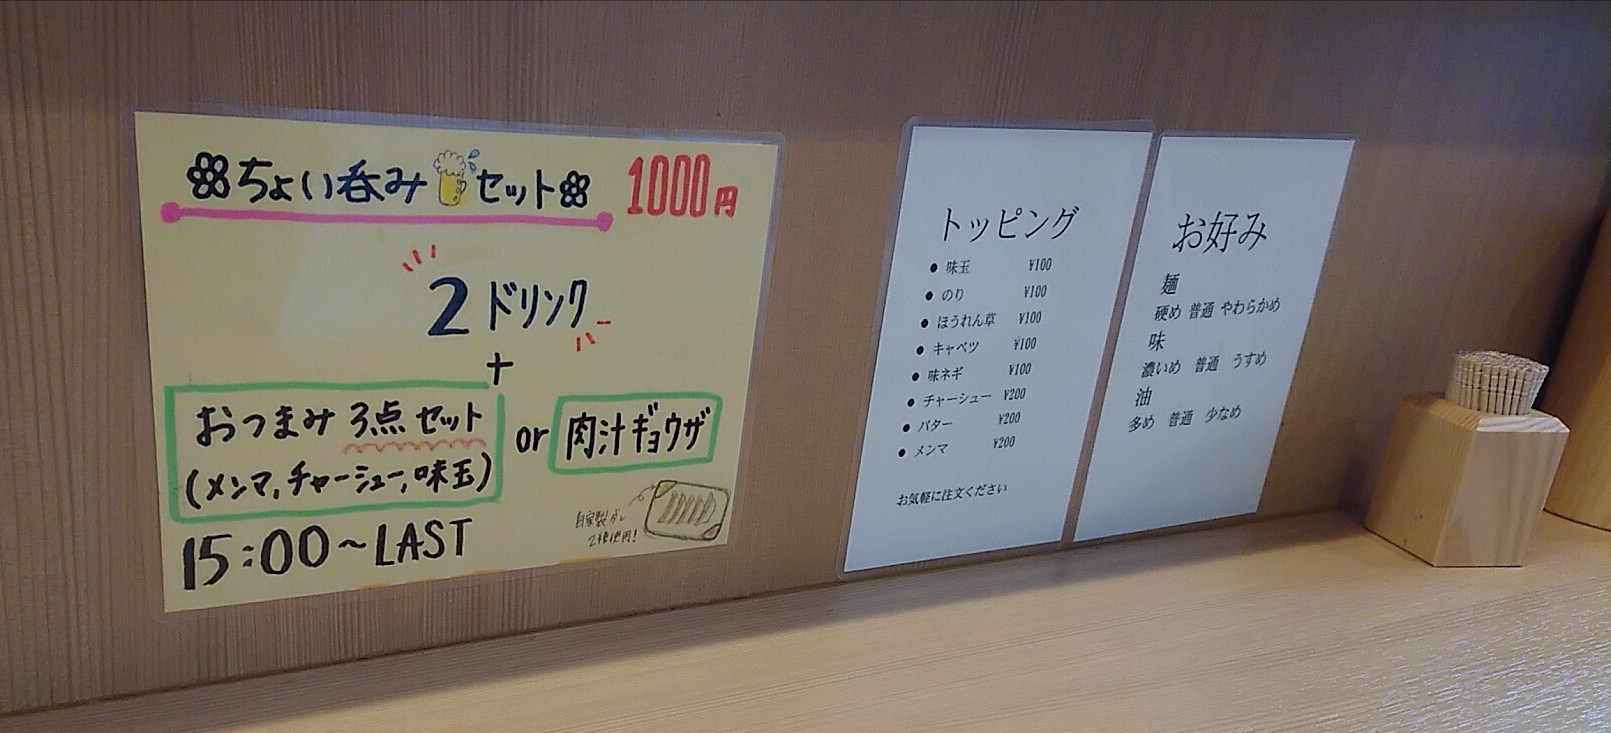 ちょい呑みセット 1000円
2ドリンク
+
おつまみ 3点セット
(メンマ,チャーシュー,味玉)
or 肉汁ギョウザ
自家製ダレ
2種使用!
15:00~LAST
トッピング
● 味玉 ¥100
● のり ¥100
● ほうれん草 ¥100
● キャベツ ¥100
● 味ネギ ¥100
● チャーシュー ¥200
● バター ¥200
● メンマ ¥200
お気軽に注文ください
お好み
麺
硬め 普通 やわらかめ
味
濃いめ 普通 うすめ
油
多め 普通 少なめ